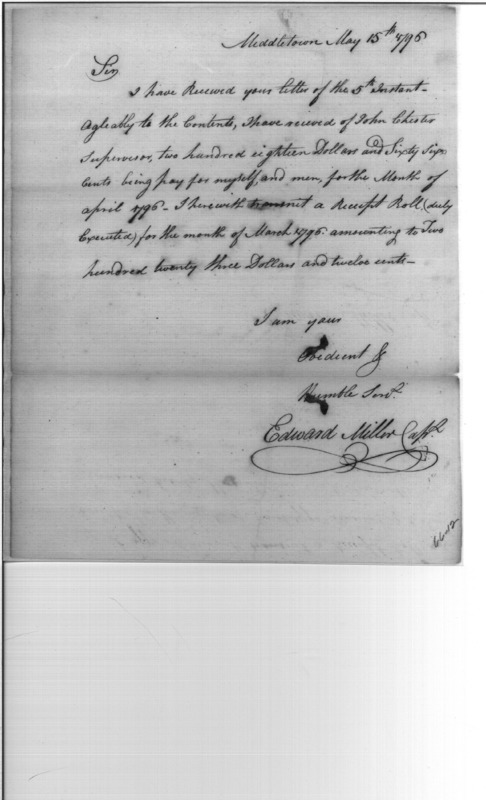 Middletown May 15th 1796
Sir
I have Recieved your letter of the 5th Instant-
Agleably to the Contents, I have recieved of John Chester
Supervisor, two hundred eighteen Dollars and Sixty Six
Cents being pay for myself, and men, for the Month of
april 1796- I herewith transmit a Receipt Roll (duly
Executed) for the month of March 1796. amounting to Two
hundred twenty three Dollars and twelve cents-
I am yours
Obedient &
Humble Servt.
Edward Miller Capt.